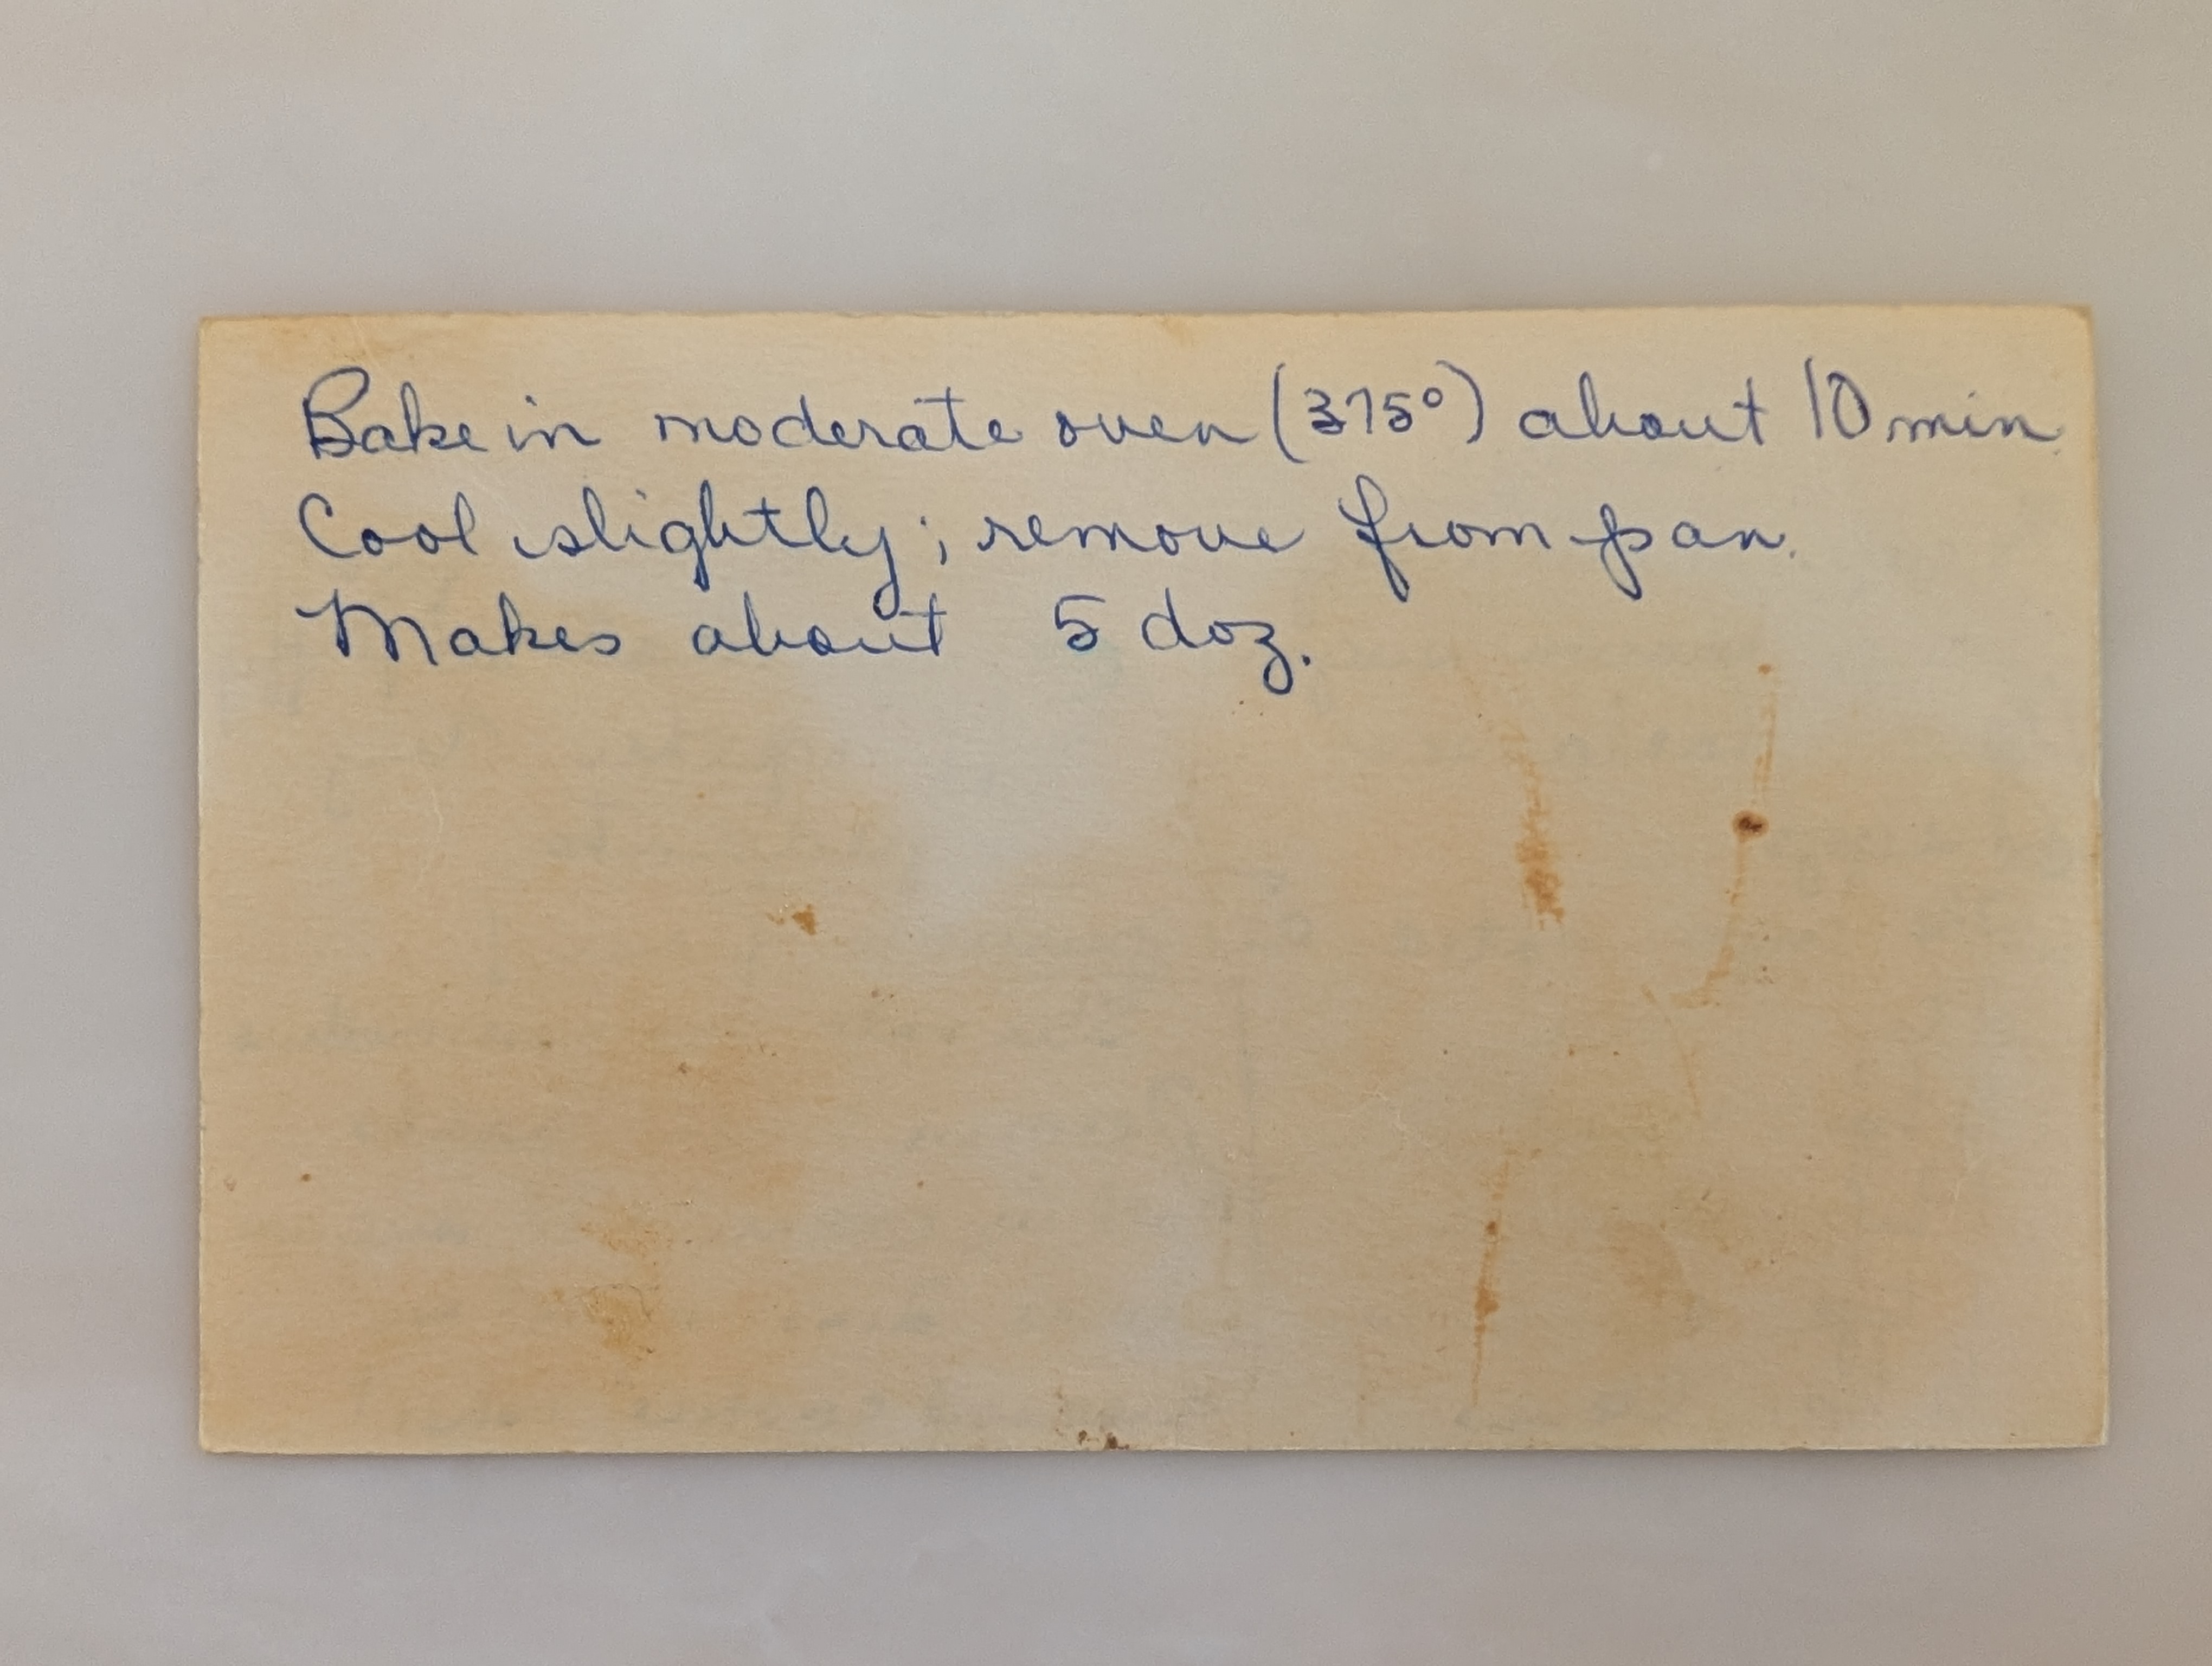 Bake in moderate oven (375°) about 10 min.
Cool slightly; remove from pan.
Makes about 5 doz.